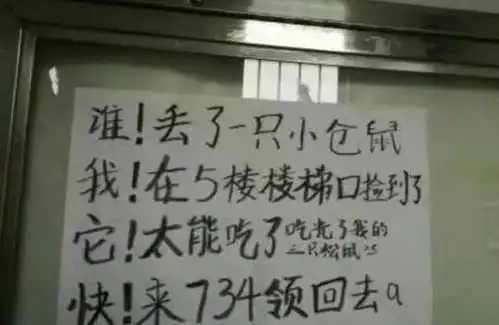 谁！丢了一只小仓鼠
我！在5楼楼梯口捡到了
它！太能吃了吃光了我的
三只松鼠
快！来734领回去a